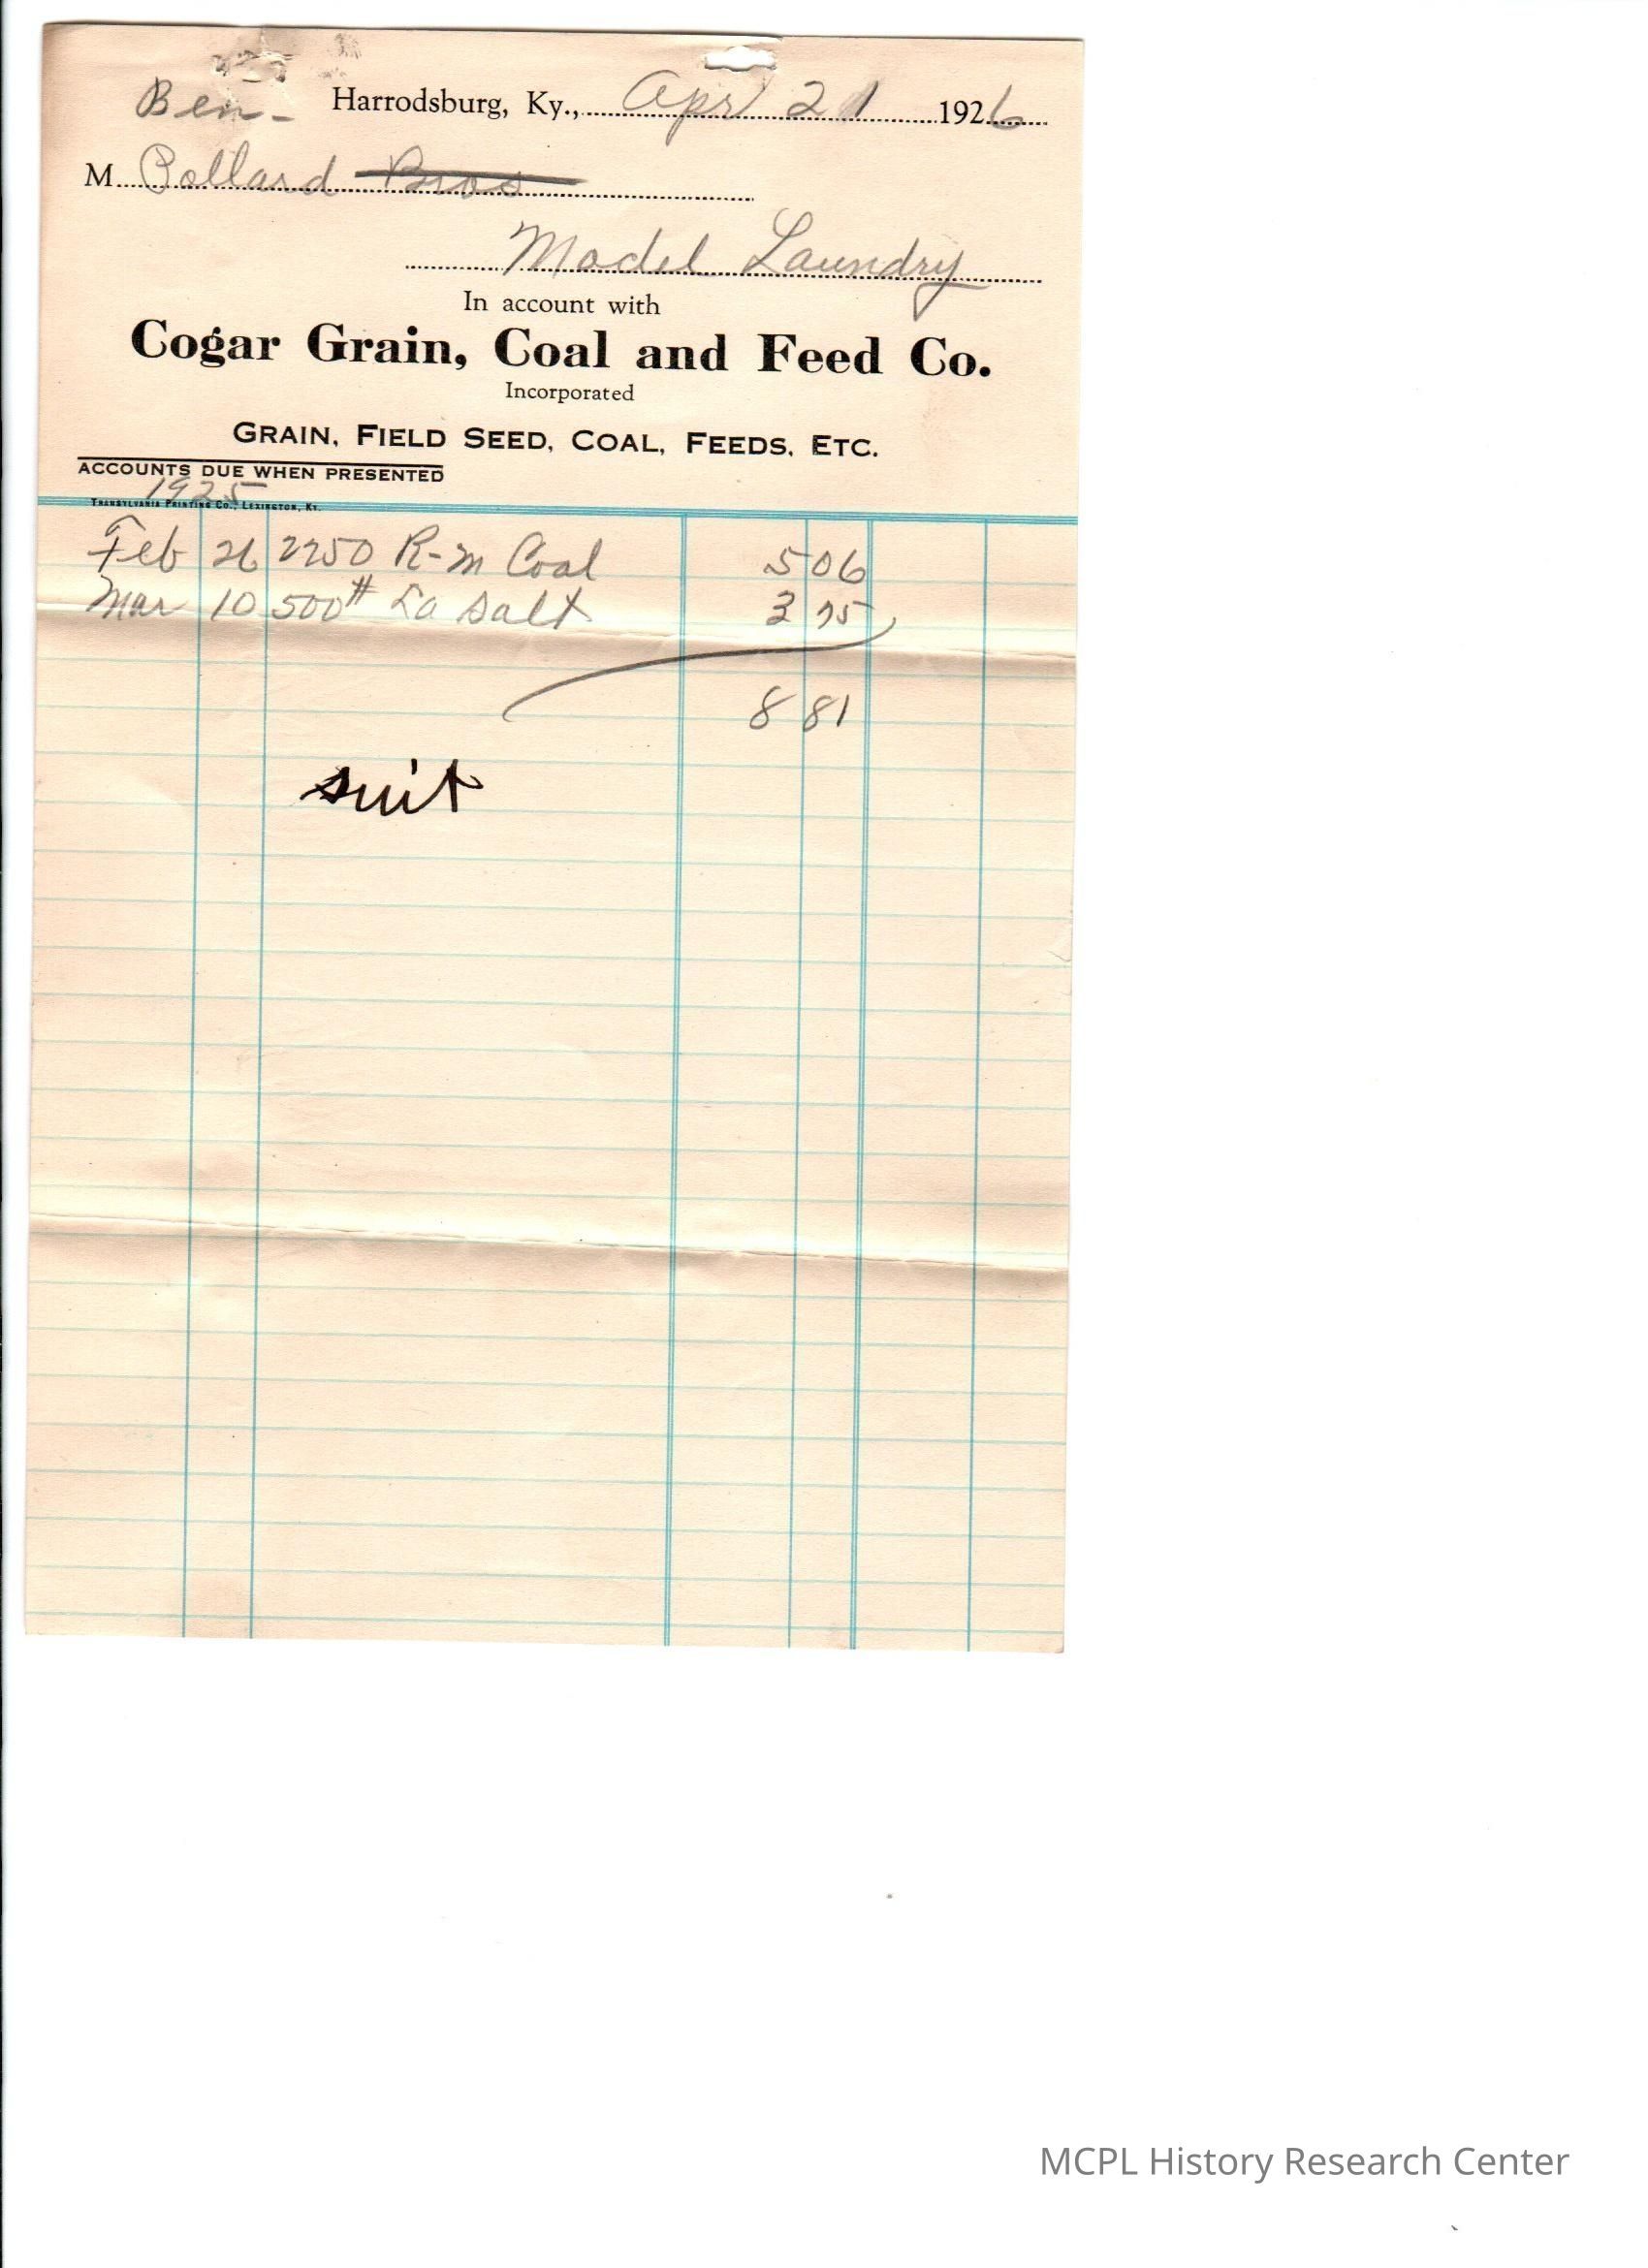 Ben - Harrodsburg, Ky., Apr 21 1926
M Pollard Bros
Model Laundry
In account with
Cogar Grain, Coal and Feed Co.
Incorporated
GRAIN, FIELD SEED, COAL, FEEDS, ETC.
ACCOUNTS DUE WHEN PRESENTED
1925
TRANSYLVANIA PRINTING CO., LEXINGTON, KY.
Feb 26 2250 R-M Coal 5 06
Mar 10 500# La Salt 3 75
8 81
suit
MCPL History Research Center